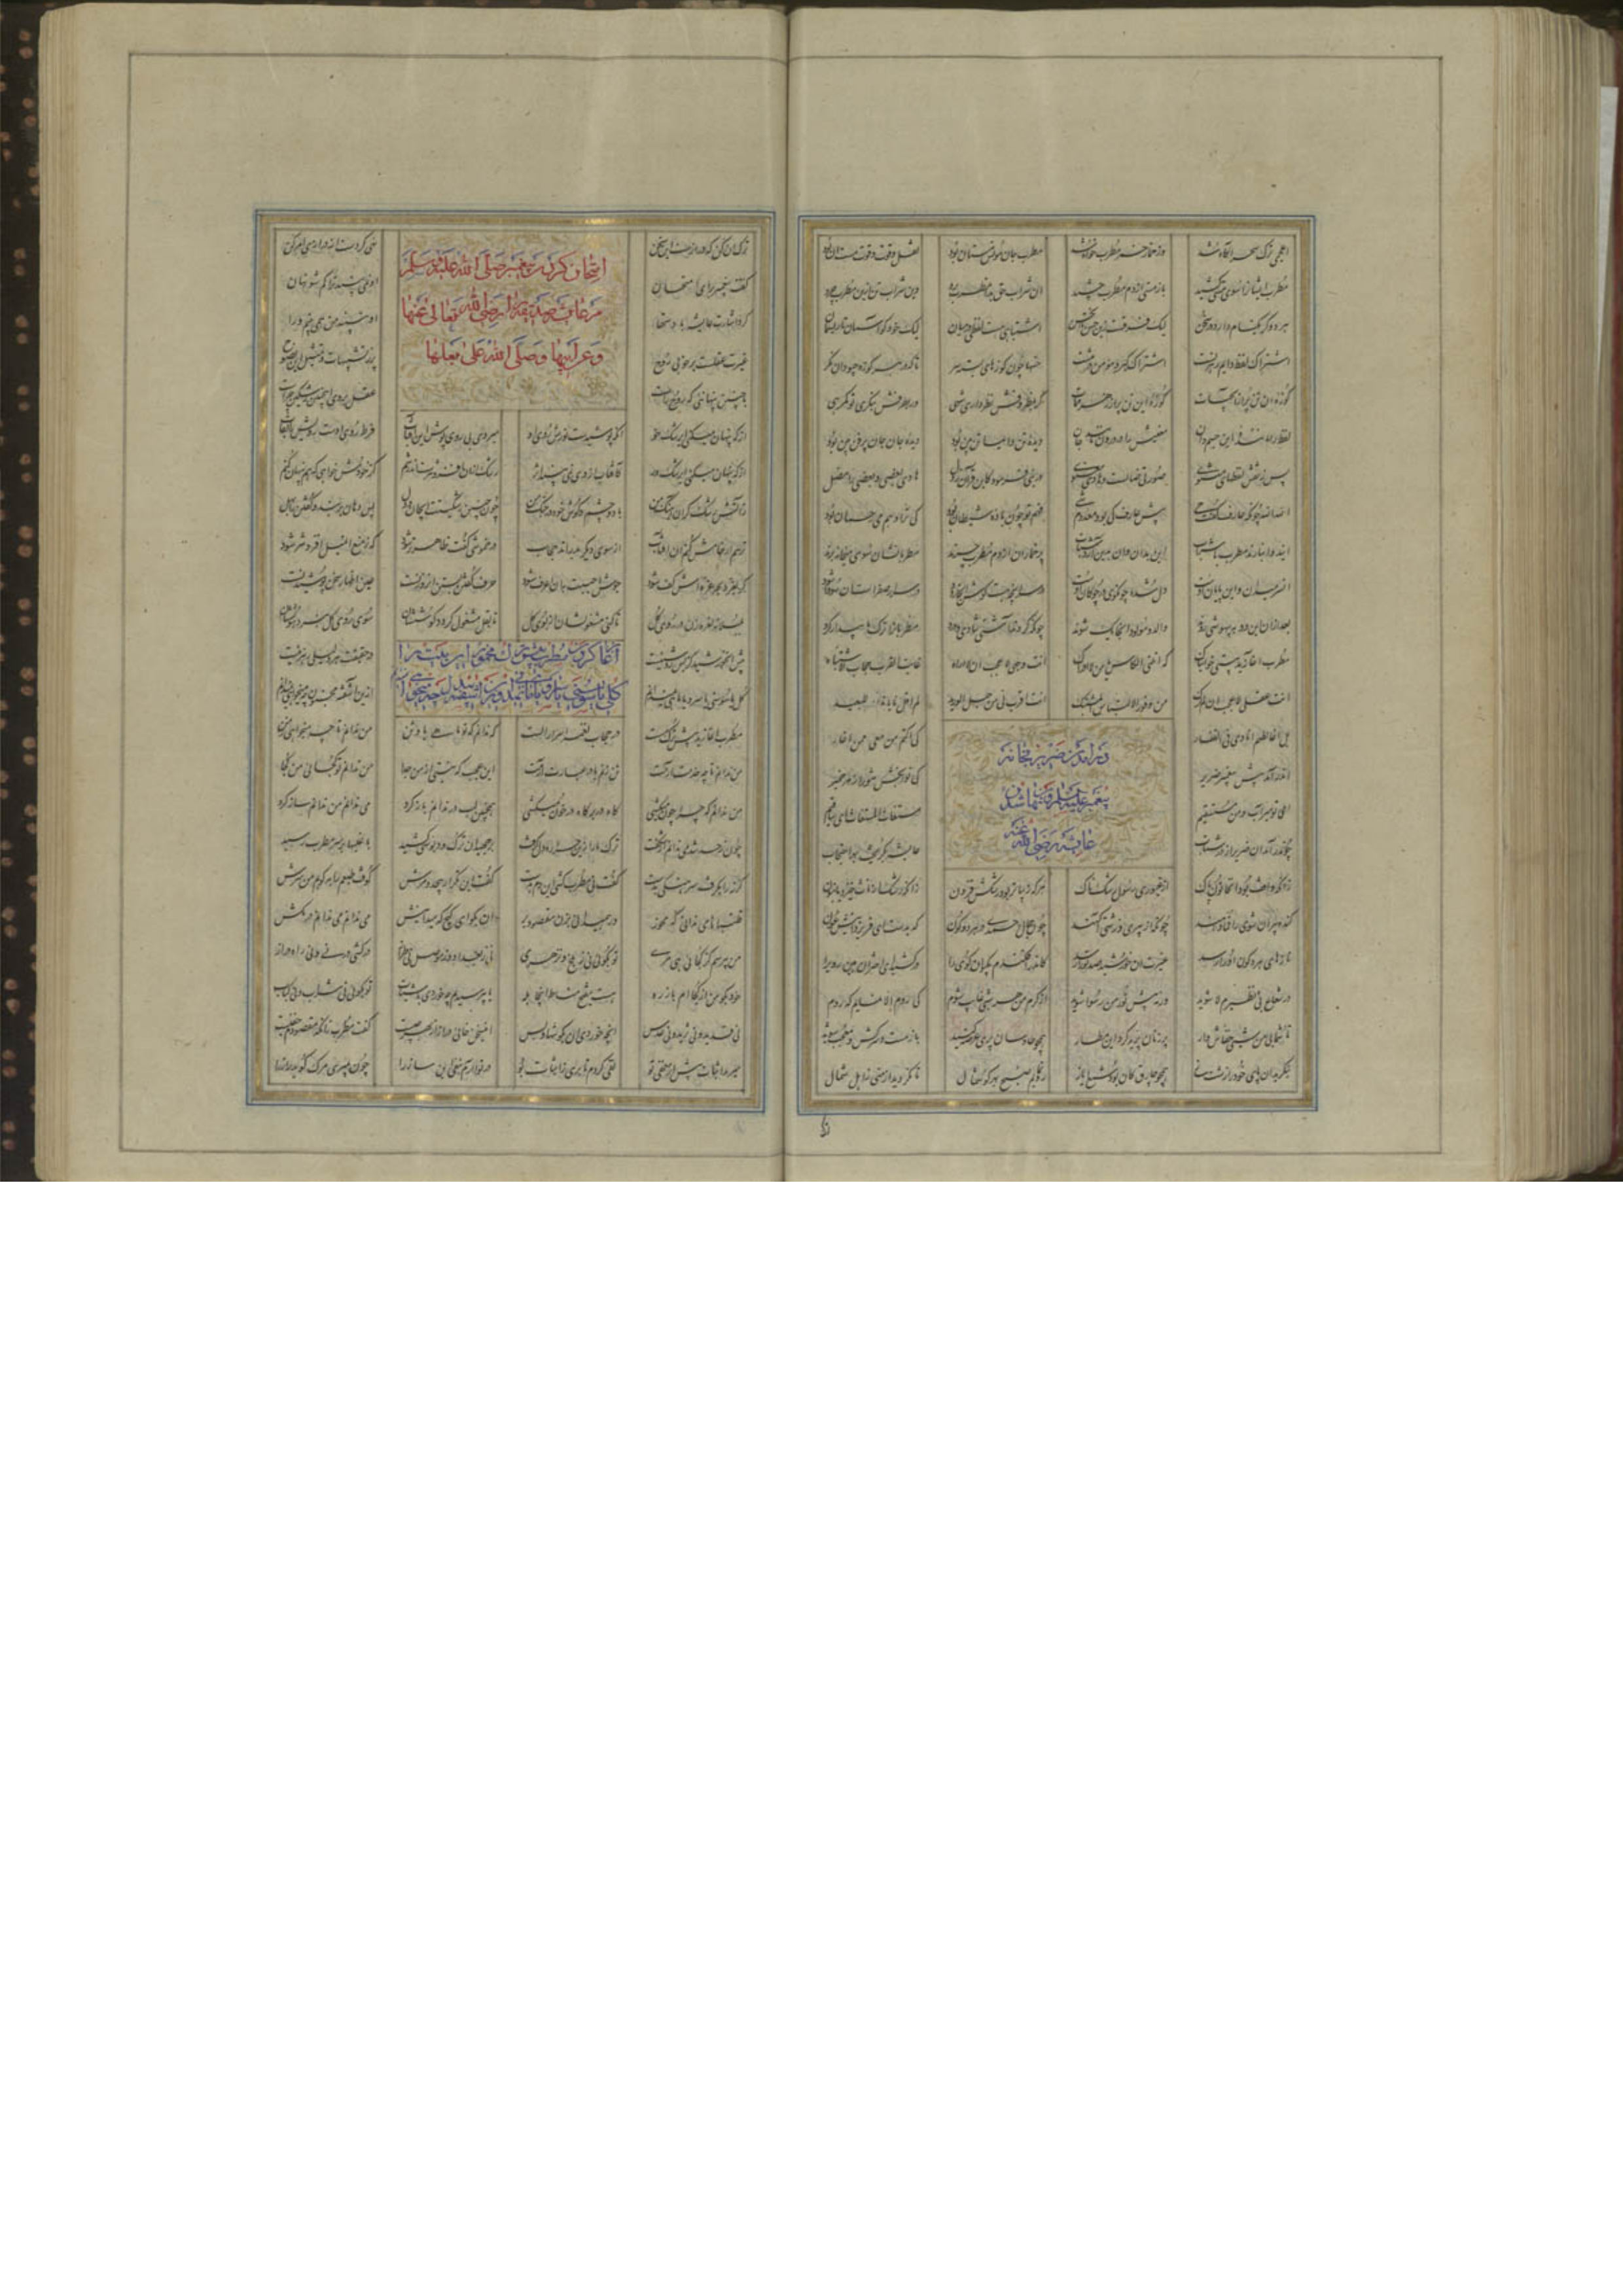 اعجمی ترک سحر آگاه شد وز خمار خمر مطرب خواه شد مطرب جان مونس مستان بود نقل و قوت و قوت مست آن بود
مطرب ایشان را سوی مستی کشید باز مستی از دم مطرب چشید آن شراب حق بدان مطرب برد وین شراب تن ازین مطرب چرد
هر دو گر یک نام دارد در سخن لیک فرقست این حسن تا آن حسن اشتباهی هست لفظی در میان لیک خود کو آسمان تا ریسمان
اشتراک لفظ دایم ره زنست اشتراک گبر و مومن در تنست جسمها چون کوزهای بسته سر تا که در هر کوزه چبود آن نگر
کوزه آن تن پر از آب حیات کوزه این تن پر از زهر ممات گر بمظروفش نظر داری شهی ور بظرفش بنگری تو گمرهی
لفظ را مانند این جسم دان معنیش را در درون مانند جان دیده تن دایما تن بین بود دیده جان جان پر فن بین بود
پس ز نقش لفظهای مثنوی صورتی ضالست و هادی معنوی در نبی فرمود کاین قرآن ز دل هادی بعضی و بعضی را مضل
الله الله چونکه عارف گفت می پیش عارف کی بود معدوم شی فهم تو چون باده شیطان بود کی ترا وهم می رحمان بود
این دو انبازند مطرب با شراب این بدان و آن بدین آرد شتاب پر خماران از دم مطرب چرند مطربانشان سوی میخانه برند
آن سر میدان و این پایان اوست دل شده چون گوی در چوگان اوست در سر آنچه هست گوش آنجا رود در سر ار صفراست آن سودا شود
بعد ازان این دو به بیهوشی روند والد و مولود آنجا یک شوند چونکه کردند آشتی شادی و درد مطربان را ترک ما بیدار کرد
مطرب آغازید بیتی خوابناک که انلنی الکاس یا من لا اراک انت وجهی لا عجب ان لا اراه غایة القرب حجاب الاشتباه
انت عقلی لا عجب ان لم ارک من وفور الالتباس المشتبک انت اقرب انی من حبل الورید لم اقل یا یا نداء للبعید
بل اغالطهم انادی فی القفار کی اکتم من معی ممن اغار
در آمدن ضریر بخانه
پیغمبر علیه السلام و پنهان شدن
عایشه رضی الله عنه
اندر آمد پیش پیغمبر ضریر کای نوابخش تنور هر خمیر
ای تو میر آب و من مستسقیم مستغاث المستغاث ای ساقیم
چون در آمد آن ضریر از در شتاب عایشه بگریخت بهر احتجاب
زانکه واقف بود آن خاتون پاک از غیوری رسول رشکناک هر که زیباتر بود رشکش فزون زانکه رشک از ناز خیزد یا بنون
گنده پیران شوی را قما دهند چونکه از پیری و زشتی آگهند چون جمال احمدی در هر دو کون کی بدست ای فر یزدانیش عون
نازهای هر دو کون او را رسد غیرت آن خورشید صد تو را رسد کاندر افکندم بکیوان گوی را در کشید ای اختران هین روی را
در شعاع بی نظیرم لا شوید ورنه پیش نور من رسوا شوید از کرم من هر شبی غایب شوم کی روم الا نمایم که روم
تا شما بی من شبی خفاش وار پر زنان پرید گرد این مطار همچو طاوسان پری عرضه کنید باز مست و سرکش و معجب شوید
بنگرید آن پای خود را زشت ساز همچو چارق کان بود شمع ایاز رو نمایم صبح بهر گوشمال تا نگردید از منی ز اهل شمال
ترک آن کن که درازست این سخن نهی کردست از درازی امر کن
امتحان کردن پیغمبر صلی الله علیه و سلم
مر عایشه صدیقه را رضی الله تعالی عنها
و عن ابیها و صلی الله علی بعلها
گفت پیغمبر برای امتحان او نمی بیند ترا کم شو نهان
کرد اشارت عایشه با دستها او نبیند من همی بینم ورا
غیرت عقلست بر خوبی روح پر ز تشبیهات و تمثیل این نصوح
با چنین پنهانیی که روح راست عقل بر وی این چنین رشکین چراست
از که پنهان میکنی ای رشک خو آنکه پوشیدست نورش روی او میرود بی روی پوش این آفتاب فرط نور اوست رویش را نقاب
از که پنهان میکنی ای رشک ور کافتاب از وی نمی بیند اثر رشک ازان افزونترست اندر تنم کز خودش خواهم که هم پنهان کنم
ز آتش رشک گران آهنگ من با دو چشم و گوش خود در جنگ من چون چنین رشکیستت ای جان و دل پس دهان بر بند و گفتن را بهل
ترسم ار خامش کنم آن آفتاب از سوی دیگر بدراند حجاب در خموشی گفت ما اظهر شود که ز منع آن میل افزونتر شود
گر بغرد بحر غره اش کف شود جوش احببت بان اعرف شود حرف گفتن بستن آن روزنست عین اظهار سخن پوشیدنست
بلبلانه نعره زن در روی گل تا کنی مشغولشان از بوی گل تا بقل مشغول گردد گوششان سوی روی گل نپرد هوششان
پیش این خورشید کو بس روشنیست در حقیقت هر دلیلی رهزنیست
آغاز کردن مطرب پیش ترک مخمور این بیت را
گل یا سوسنی یا سرو یا ماهی نمیدانم ازین آشفته بیدل چه میخواهی نمیدانم
مطرب آغازید پیش ترک مست در حجاب نغمه اسرار الست که ندانم که تو ماهی یا وثن من ندانم تا چه میخواهی ز من
من ندانم تا چه خدمت آرمت تن زنم یا در عبارت آرمت این عجب که نیستی از من جدا من ندانم تو کجایی من کجا
من ندانم که چرا چون میکشی گاه در بر گاه در خون میکشی همچنین لب در ندانم باز کرد می ندانم من ندانم ساز کرد
چون ز حد شد می ندانم از شگفت ترک ما را زین حراره دل گرفت برجهید آن ترک و دبوسی کشید تا علیها بر سر مطرب رسید
گرز را بگرفت سرهنگی بدست گفت نی مطرب کشی این دم بدست گفت این تکرار بی حد و مرش کوفت طبعم را بکوبم من سرش
قلتبانا می ندانی گه مخور ور همیدانی بزن مقصود بر آن بگو ای گیج که میدانیش می ندانم می ندانم در مکش
من بپرسم کز کجایی هی مری تو بگویی نی ز بلخ و نز هری نی ز بغداد و نه موصل نی طراز در کشی در نی و نی راه دراز
خود بگو من از کجاام باز ره هست تنقیح مناط اینجا بله یا بپرسیدم چه خوردی ناشتاب تو بگویی نی شراب و نی کباب
نی قدید و نی ثرید و نی عدس آنچه خوردی آن بگو تنها و بس این سخن خایی دراز از بهر چیست گفت مطرب زانکه مقصودم خفیست
میرمد اثبات پیش از نفی تو نفی کردم تا بری ز اثبات بو در نوا آرم بنفی این ساز را چون بمیری مرگ گوید راز را